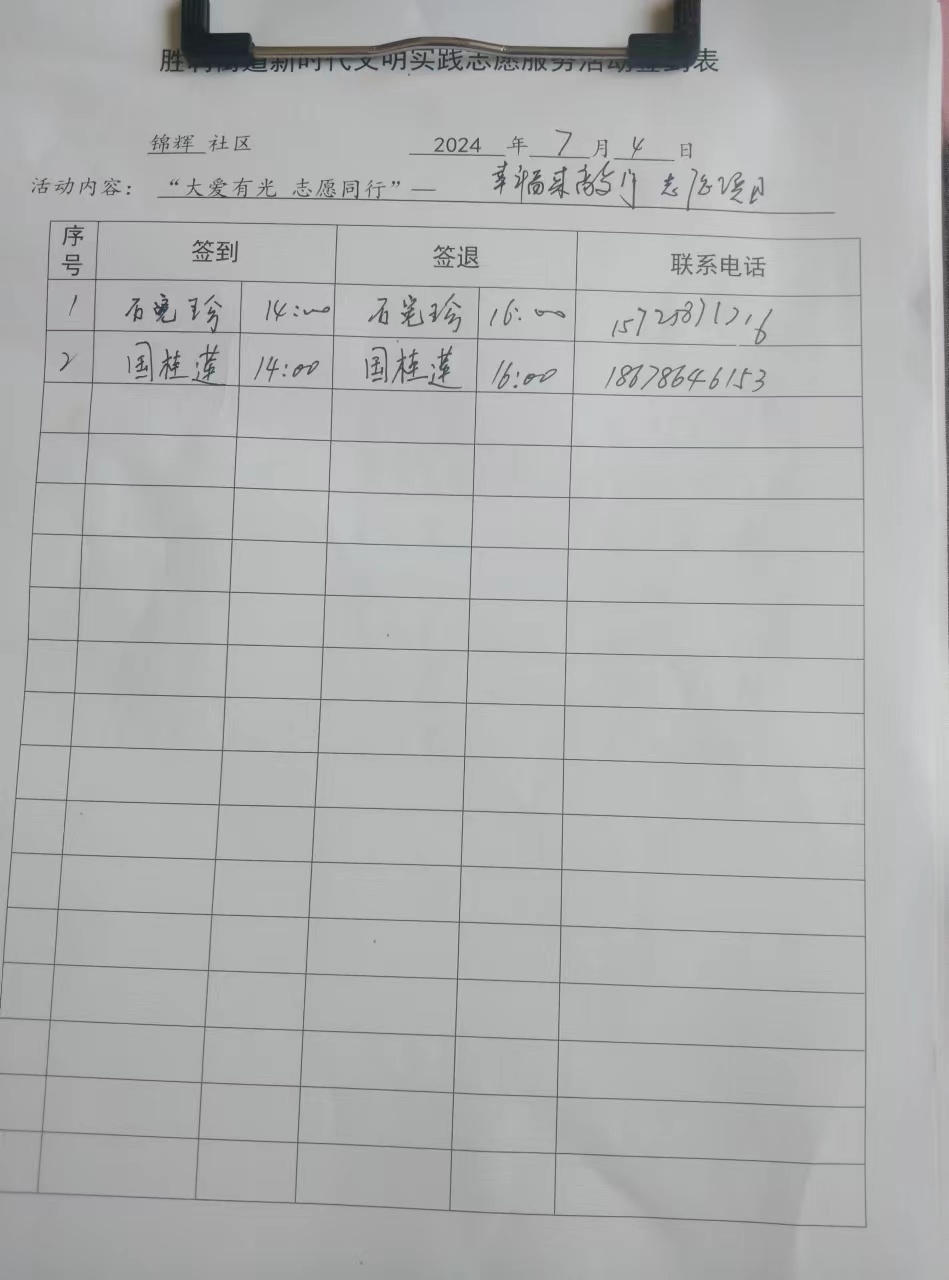 胜利街道新时代文明实践志愿服务活动签到表
锦辉 社区 2024 年 7 月 4 日
活动内容： “大爱有光 志愿同行”— 幸福来敲门 志愿项目
序号 签到 签退 联系电话
1 石宪珍 14:00 石宪珍 16:00
2 国桂莲 14:00 国桂莲 16:00 18678646153